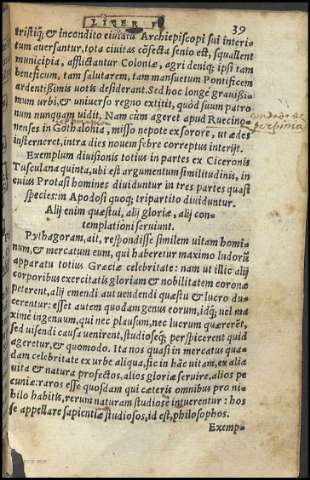 LIBER I. 39
tristiq́; & incondito eiulatu Archiepiscopi sui interi-
tum aversantur. tota civitas cõfecta senio est, squallent
municipia, afflictantur Coloniæ, agri deniq; ipsi tam
beneficum, tam salutarem, tam mansuetum Pontificem
ardentissimis votis desiderant. Sed hoc longe gravissi-
mum urbi, & universo regno extitit, quòd suum patro
num nunquam vidit. Nam cùm ageret apud Ruecino-
nenses in Gotholonia, misso nepote exorore, ut ædes
insterneret, intra dies novem febre correptus interijt.
Exemplum divisionis totius in partes ex Ciceronis
Tusculana quinta, ubi est argumentum similitudinis, in
cuius Protasi homines dividuntur in tres partes quasi
species: in Apodosi quoq; tripartito dividuntur.
Alij enim quæstui, alij gloriæ, alij con-
templationi serviunt.
Pythagoram, ait, respõdisse similem vitam homi-
num, & mercatum eum, qui haberetur maximo ludorũ
apparatu totius Græciæ celebritate: nam ut illic alij
corporibus exercitatis gloriam & nobilitatem coronæ
peterent, alij emendi aut vendendi quæstu & lucro du-
cerentur: esset autem quodam genus eorum, idq́; vel ma
ximè ingenuum, qui nec plausum, nec lucrum quærerẽt,
sed visendi causa venirent, studioseq́; perspicerent quid
ageretur, & quomodo. Ita nos quasi in mercatus quan-
dam celebritate ex urbe aliqua, sic in hãc vitam, ex alia
vita & natura profectos, alios gloriæ servire, alios pe
cuniæ: raros esse quosdam qui cæteris omnibus pro ni-
hilo habitis, rerum naturam studiose intuerentur: hos
se appellare sapientiæ studiosos, id est, philosophos.
Exemp-